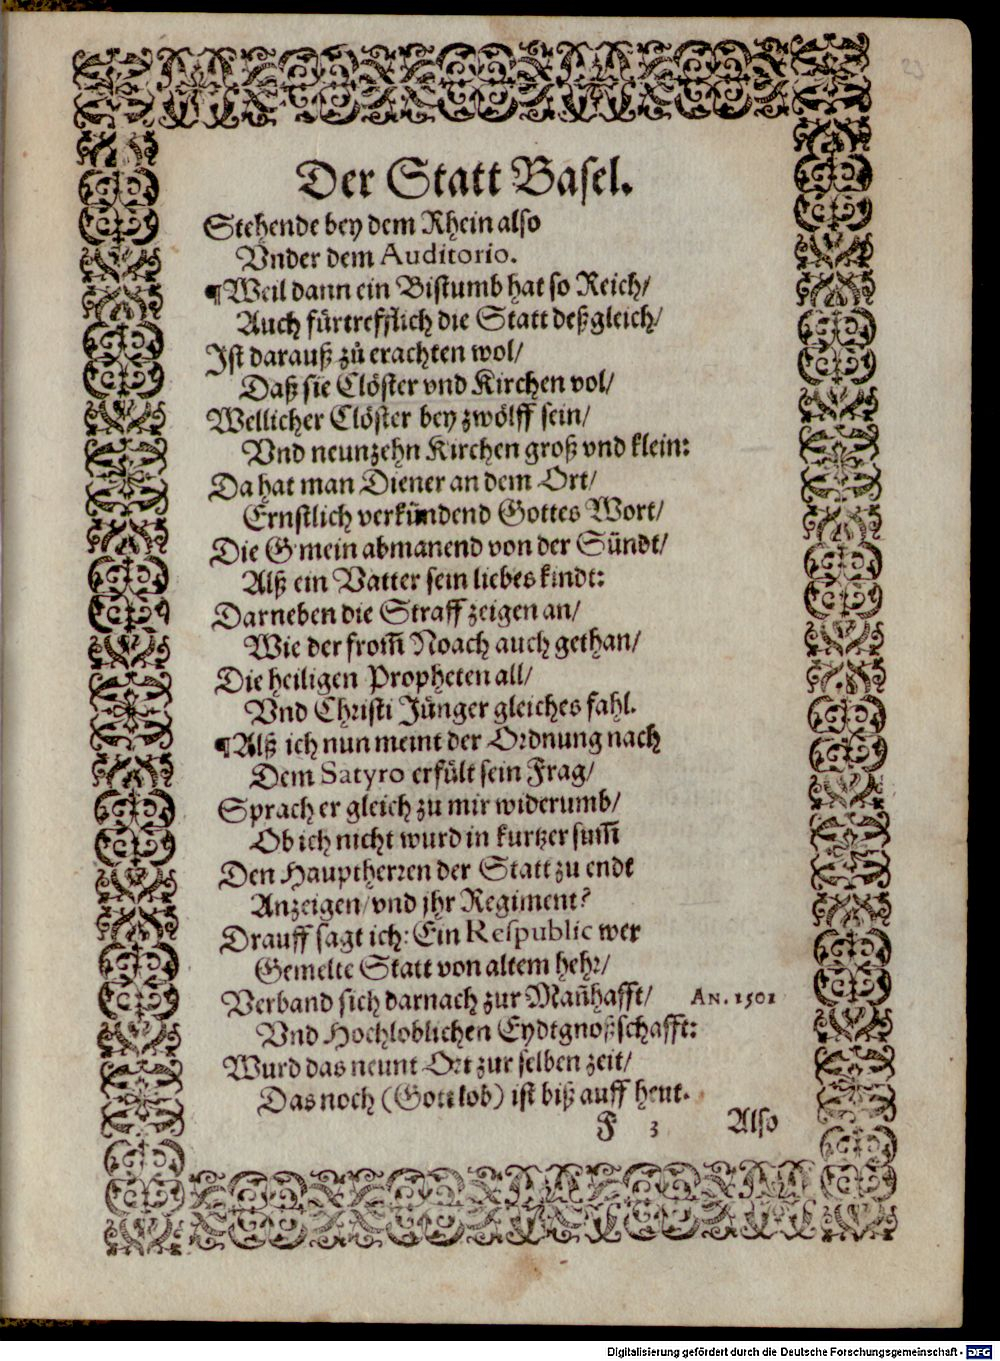 23
Der Statt Basel.
Stehende bey dem Rhein also
Vnder dem Auditorio.
¶Weil dann ein Bistumb hat so Reich/
Auch fürtrefflich die Statt deßgleich/
Ist darauß zů erachten wol/
Daß sie Clöster vnd Kirchen vol/
Wellicher Clöster bey zwölff sein/
Vnd neunzehn Kirchen groß vnd klein:
Da hat man Diener an dem Ort/
Ernstlich verkündend Gottes Wort/
Die G'mein abmanend von der Sündt/
Alß ein Vatter sein liebes kindt:
Darneben die Straff zeigen an/
Wie der from̃ Noach auch gethan/
Die heiligen Propheten all/
Vnd Christi Jünger gleiches fahl.
¶Alß ich nun meint der Ordnung nach
Dem Satyro erfült sein Frag/
Sprach er gleich zu mir widerumb/
Ob ich nicht wurd in kurtzer sum̃
Den Hauptherren der Statt zu endt
Anzeigen/ vnd jhr Regiment?
Drauff sagt ich: Ein Respublic wer
Gemelte Statt von altem hehr/
Verband sich darnach zur Mañhafft/ AN. 1501
Vnd Hochloblichen Eydtgnoßschafft:
Wurd das neunt Ort zur selben zeit/
Das noch (Gott lob) ist biß auff heut.
F 3 Also
Digitalisierung gefördert durch die Deutsche Forschungsgemeinschaft - DFG